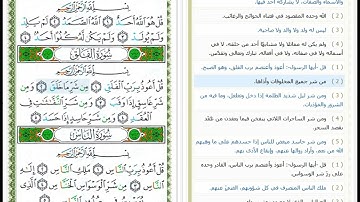 قُلْ هُوَ ٱللَّهُ أَحَدٌ ۝ ٱللَّهُ ٱلصَّمَدُ ۝ لَمْ يَلِدْ
وَلَمْ يُولَدْ ۝ وَلَمْ يَكُن لَّهُۥ كُفُوًا أَحَدٌ ۝
سُورَةُ الفَلَقِ
قُلْ أَعُوذُ بِرَبِّ ٱلْفَلَقِ ۝ مِن شَرِّ مَا خَلَقَ ۝
سُورَةُ النَّاسِ
قُلْ أَعُوذُ بِرَبِّ ٱلنَّاسِ ۝ مَلِكِ ٱلنَّاسِ ۝ إِلَٰهِ
ٱلنَّاسِ ۝ مِن شَرِّ ٱلْوَسْوَاسِ ٱلْخَنَّاسِ ۝ ٱلَّذِى
والأسماء والصفات، لا يشاركه أحد فيها.
(2) الله وحده المقصود في قضاء الحوائج والرغائب.
(3) ليس له ولد ولا والد ولا صاحبة.
(4) ولم يكن له مماثلا ولا مشابهًا أحد من خلقه، لا في
أسمائه ولا في صفاته، ولا في أفعاله، تبارك وتعالى وتقدَّس.
(1) قل -أيها الرسول-: أعوذ وأعتصم برب الفلق، وهو الصبح.
(2) من شر جميع المخلوقات وأذاها.
(3) ومن شر ليل شديد الظلمة إذا دخل وتغلغل، وما فيه من
الشرور والمؤذيات.
(4) ومن شر الساحرات اللاتي ينفخن فيما يعقدن من عُقَد
بقصد السحر.
(5) ومن شر حاسد مبغض للناس إذا حسدهم على ما وهبهم
الله من نعم، وأراد زوالها عنهم، وإيقاع الأذى بهم.
(1) قل -أيها الرسول-: أعوذ وأعتصم برب الناس، القادر وحده
على ردِّ شر الوسواس.
(2) ملك الناس المتصرف في كل شؤونهم، الغنيِّ عنهم.